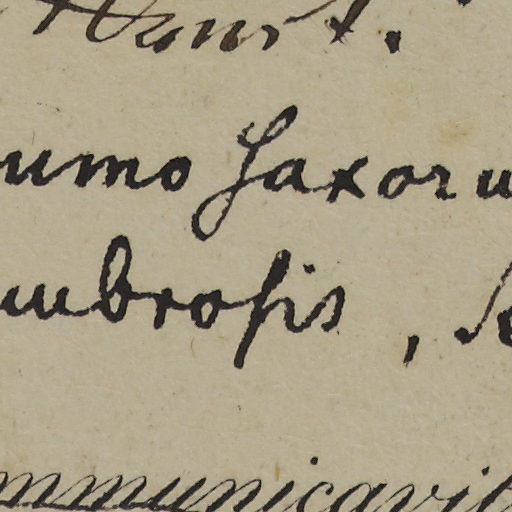 umo saxoru
umbrosis, 
mmunicavit